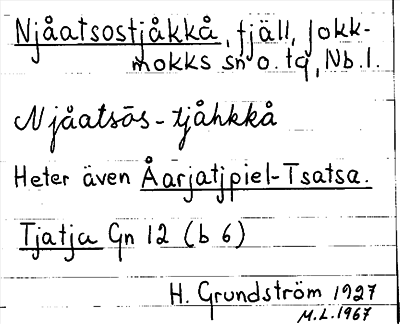 Njåatsostjåkkå, fjäll, Jokk-
mokks sn o. tg, Nb. l.
Njåatsōs-tjåhkkå
Heter även Åarjatjpiel-Tsatsa.
Tjatja Gn 12 (b 6)
H. Grundström 1927
M.L. 1967